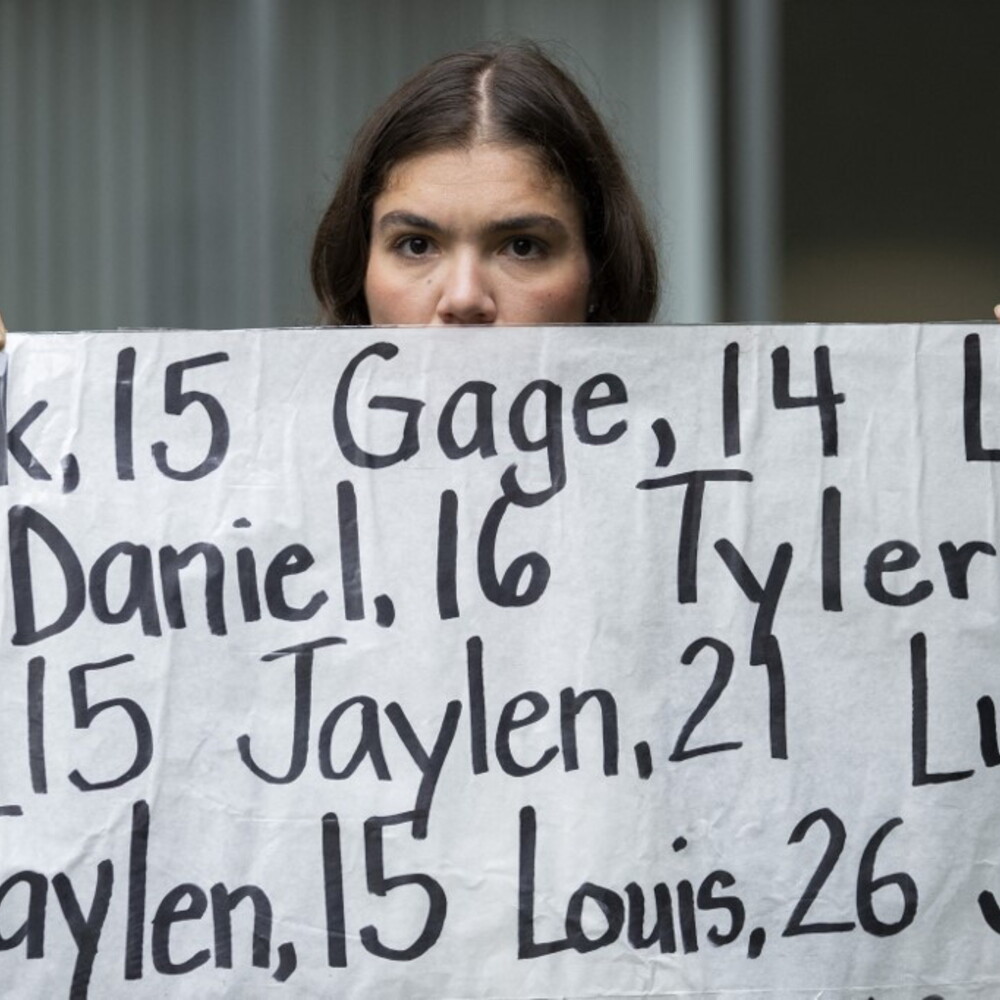 k, 15 Gage, 14 L
Daniel, 16 Tyler
15 Jaylen, 21 Lu
aylen, 15 Louis, 26